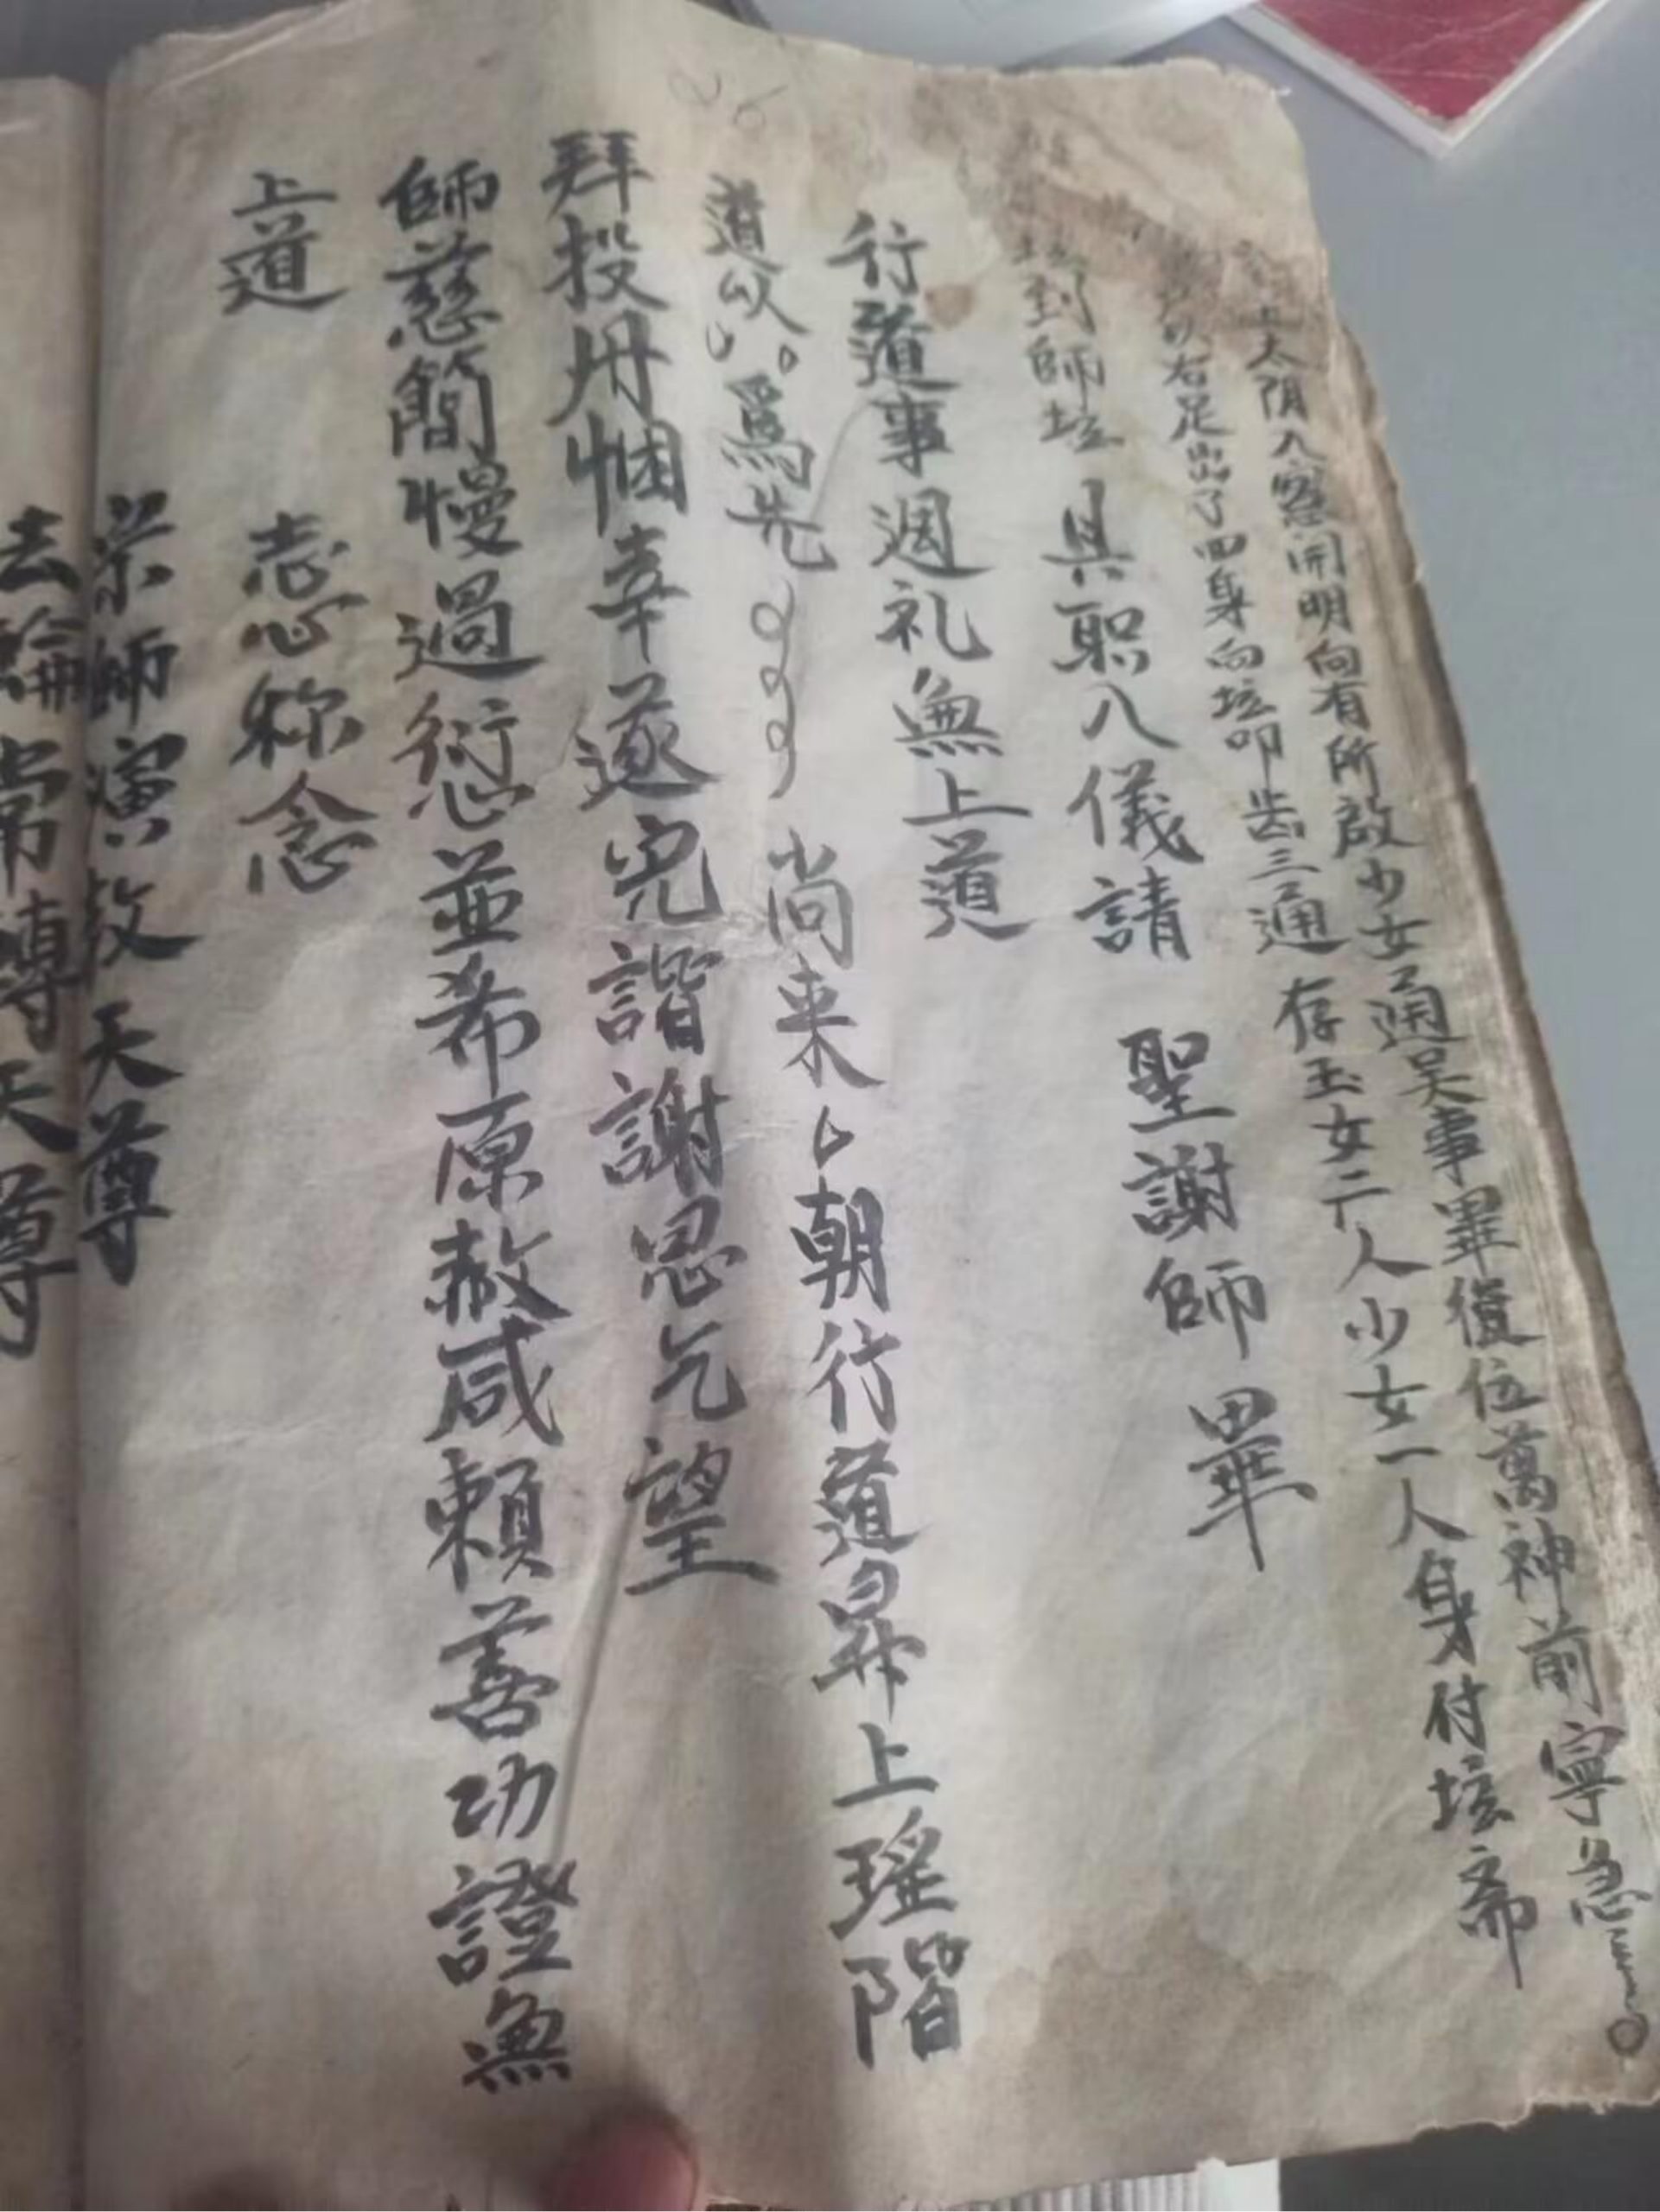 太阴入窓開明向有所啟少女通吴事畢復位萬神前寧急
右足出了回身向坛叩齿三通 存玉女二人少女一人身付坛斋
到師坛 具职入儀請 聖謝師 畢
行道事週礼無上道
道以 為先 尚来 朝行道昇上瑶階
拜投丹悃幸遂完諧謝恩乞望
師慈簡慢過衍愆並希原赦咸賴善功證無
上道 志心称念
宗師演教天尊
去輪常轉天尊